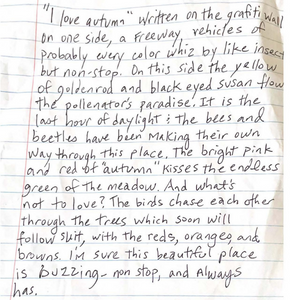 "I love autumn" written on the grafiti wall
on one side, a freeway, vehicles of
probably every color whiz by like insect
but non-stop. On this side the yellow
of goldenrod and black eyed susan flow
the pollenator's paradise. It is the
last hour of daylight & the bees and
beetles have been making their own
way through this place. The bright pink
and red of "autumn" kisses the endless
green of the meadow. And what's
not to love? The birds chase each other
through the trees which soon will
follow suit, with the reds, oranges, and
browns. I'm sure this beautiful place
is Buzzing - non stop, and Always
has.